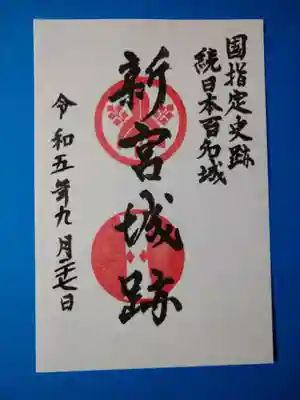 国指定史跡
続日本百名城
新宮城跡
令和五年九月二七日